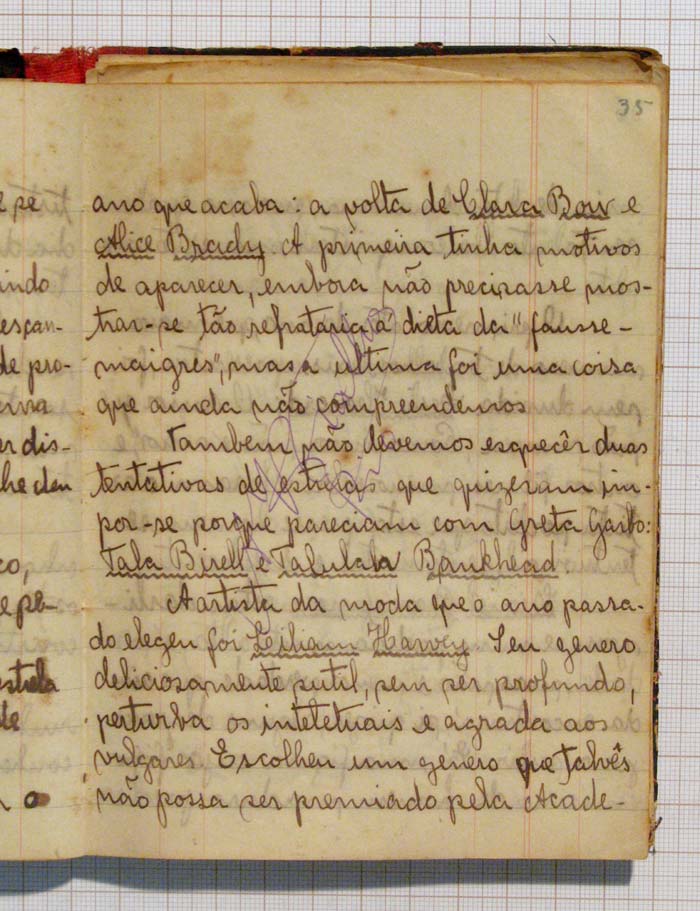 35
ano que acaba: a volta de Clara Bow e
Alice Brady. A primeira tinha motivos
de aparecer, embora não precisasse mos-
trar-se tão refrataria à dieta da "fausse-
maigres", mas a ultima foi uma coisa
que ainda não compreendemos
Tambem não devemos esquecêr duas
tentativas de estrelas que quizeram im-
por-se porque pareciam com Greta Garbo:
Tala Birell e Talulah Bankhead.
A artista da moda que o ano passa-
do elegeu foi Liliam Harvey Seu genero
deliciosamente sutil, sem ser profundo,
perturba os inteletuais e agrada aos
vulgares. Escolheu um genero que talvês
não possa ser premiado pela Acade-